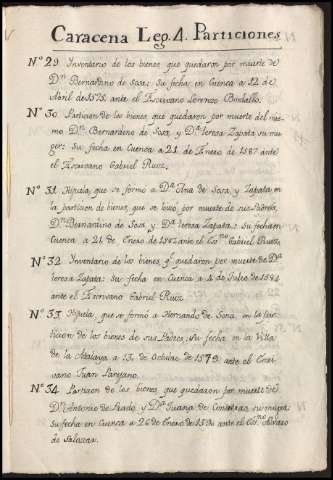 Caracena Leg. 4. Particiones
Nº 29 Inventario de los bienes que quedaron por muerte de
Dn. Bernardino de Sosa: Su fecha en Cuenca a 12 de
Abril de 1575. ante el Escrivano Lorenzo
Nº 30 Particion de los bienes que quedaron por muerte del mis-
mo Dn. Bernardino de Sosa y Dª. Teresa Zapata su mu-
ger: Su fecha en Cuenca a 21 de Enero de 1587 ante
el Escrivano Gabriel Ruiz.
Nº 31 Hijuela, que se formó a Dª. Ana de Sosa, y Zapata, en
la particion de bienes, que se hizo por muerte de sus Padres,
Dn. Bernardino de Sosa y Dª. Teresa Zapata: Su fecha en
Cuenca a 21 de Enero de 1587 ante el Esno. Gabriel Ruiz.
Nº 32 Inventario de los bienes qe. quedaron por muerte de Dª.
Teresa Zapata: Su fecha en Cuenca a 4 de Julio de 1584
ante el Escrivano Gabriel Ruiz
Nº 33 Hijuela, que se formó a Hernando de Soria, en la par-
ticion de los bienes de sus Padres: Su fecha en la Villa
de la Atalaya a 13 de Octubre de 1579 ante el Escri-
vano Juan
Nº 34 Particion de los bienes que quedaron por muerte de
Dn. Antonio de Prado y Dª. Juana de Contreras su muger:
su fecha en Cuenca a 26 de Enero de ante el Esno. Alvaro
de Salazar.